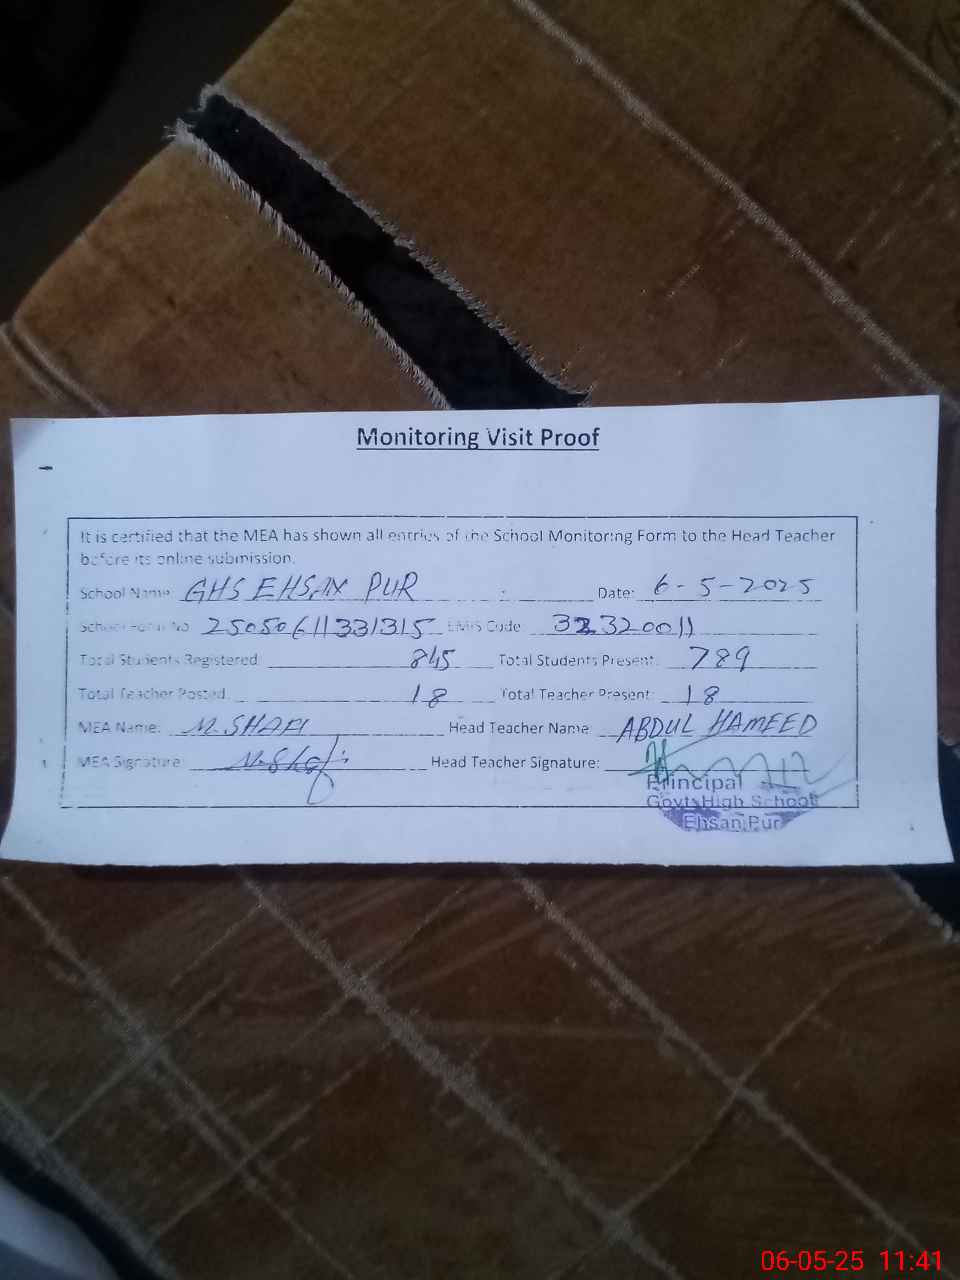 Monitoring Visit Proof
It is certified that the MEA has shown all entries of the School Monitoring Form to the Head Teacher
before its online submission.
School Name: GHS EHSAN PUR Date: 6-5-2025
School Form No. 25050611331315 EMIS Code: 32320011
Total Students Registered: 845 Total Students Present: 789
Total Teacher Posted: 18 Total Teacher Present: 18
MEA Name: M. SHAFI Head Teacher Name: ABDUL HAMEED
MEA Signature: M. Shafi Head Teacher Signature:
Principal
Govt: High School
Ehsan Pur
06-05-25 11:41